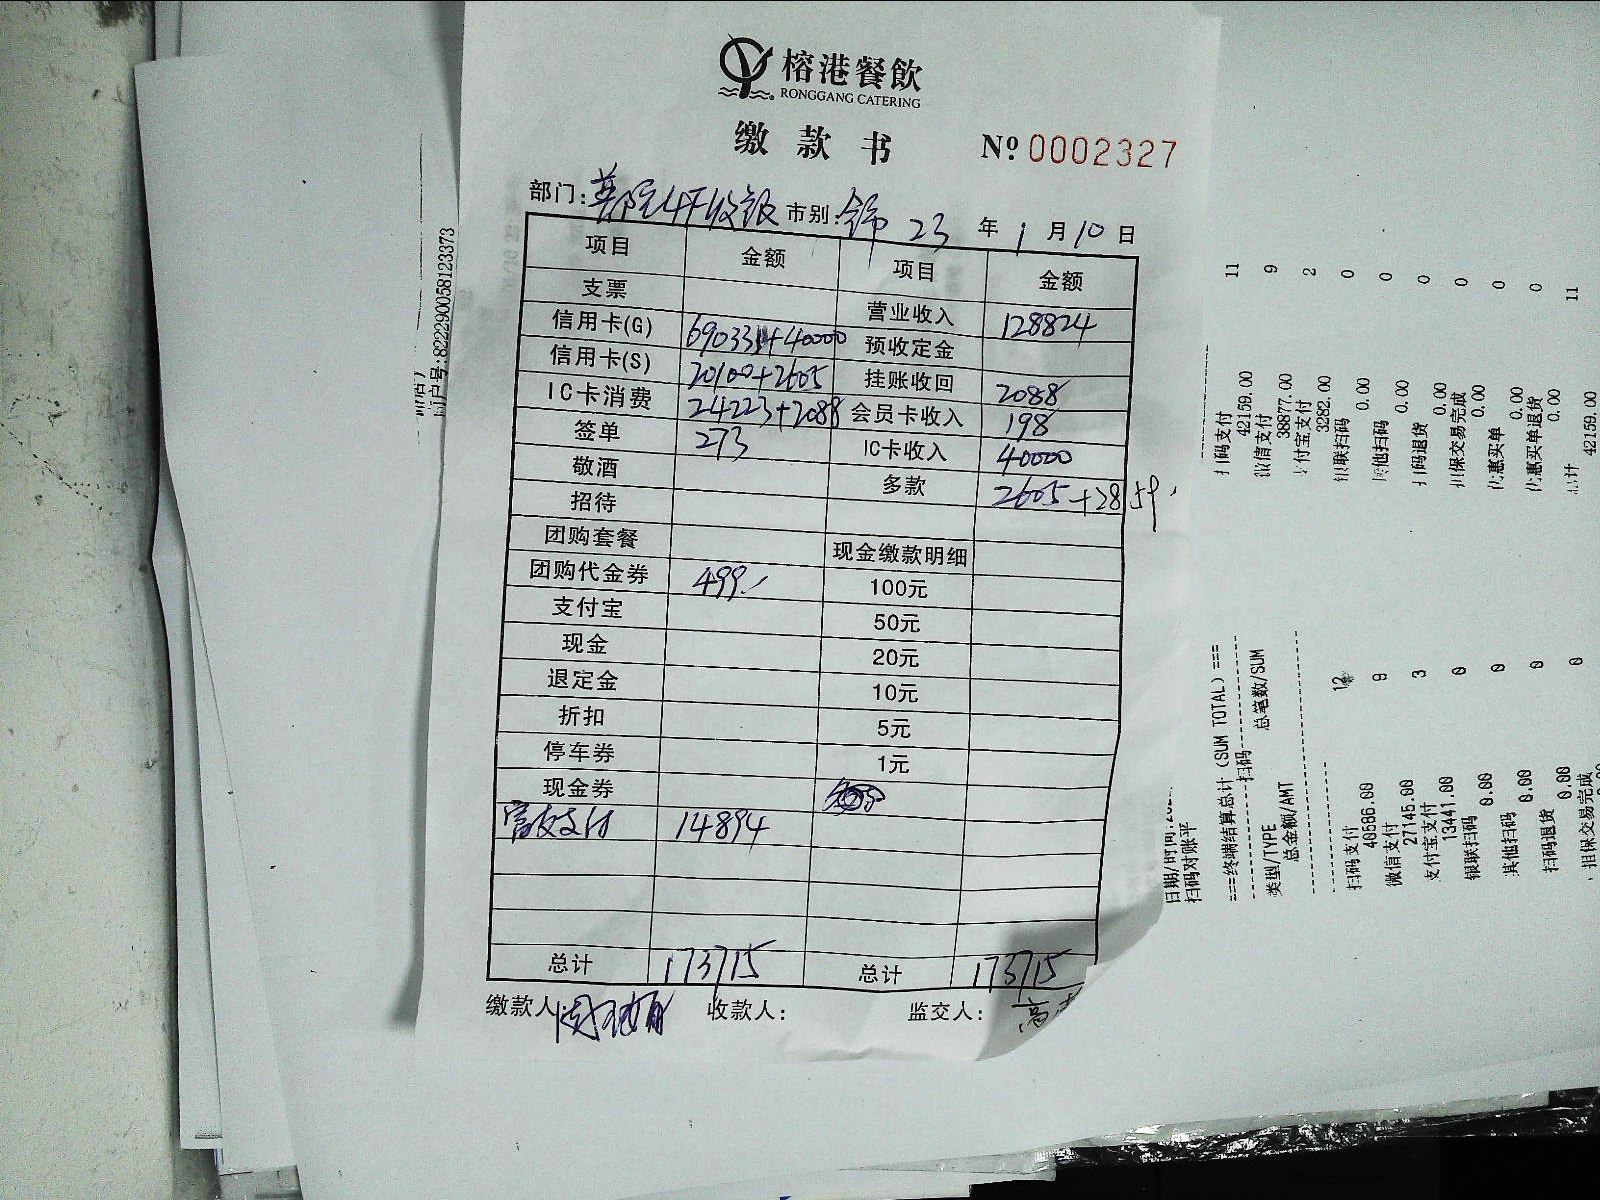 榕港餐飲
RONGGANG CATERING
缴款书 Nº 0002327
部门: 4F收银 市别: 23 年 1 月 10 日
项目 金额 项目 金额
支票 营业收入 128824
信用卡(G) +40000 预收定金
信用卡(S) 20100+2605 挂账收回 2088
IC卡消费 24223+2088 会员卡收入 198
签单 273 IC卡收入 40000
敬酒 多款 2605+28
招待
团购套餐 现金缴款明细
团购代金券 499 100元
支付宝 50元
现金 20元
退定金 10元
折扣 5元
停车券 1元
现金券
支付 14894
总计 173715 总计 173715
缴款人: 收款人: 监交人: 高
商户号:82229058123373
扫码支付 11
42159.00
微信支付 9
38877.00
支付宝支付 2
3282.00
银联扫码 0
0.00
其他扫码 0
0.00
扫码退货 0
0.00
担保交易完成 0
0.00
优惠买单 0
0.00
优惠买单退货 0
0.00
总计 11
42159.00
日期/时间:
扫码对账平
===终端结算总计(SUM TOTAL)===
扫码
类型/TYPE 总笔数/SUM
总金额/AMT
扫码支付 12
40586.00
微信支付 9
27145.00
支付宝支付 3
13441.00
银联扫码 0
0.00
其他扫码 0
0.00
扫码退货 0
0.00
担保交易完成 0